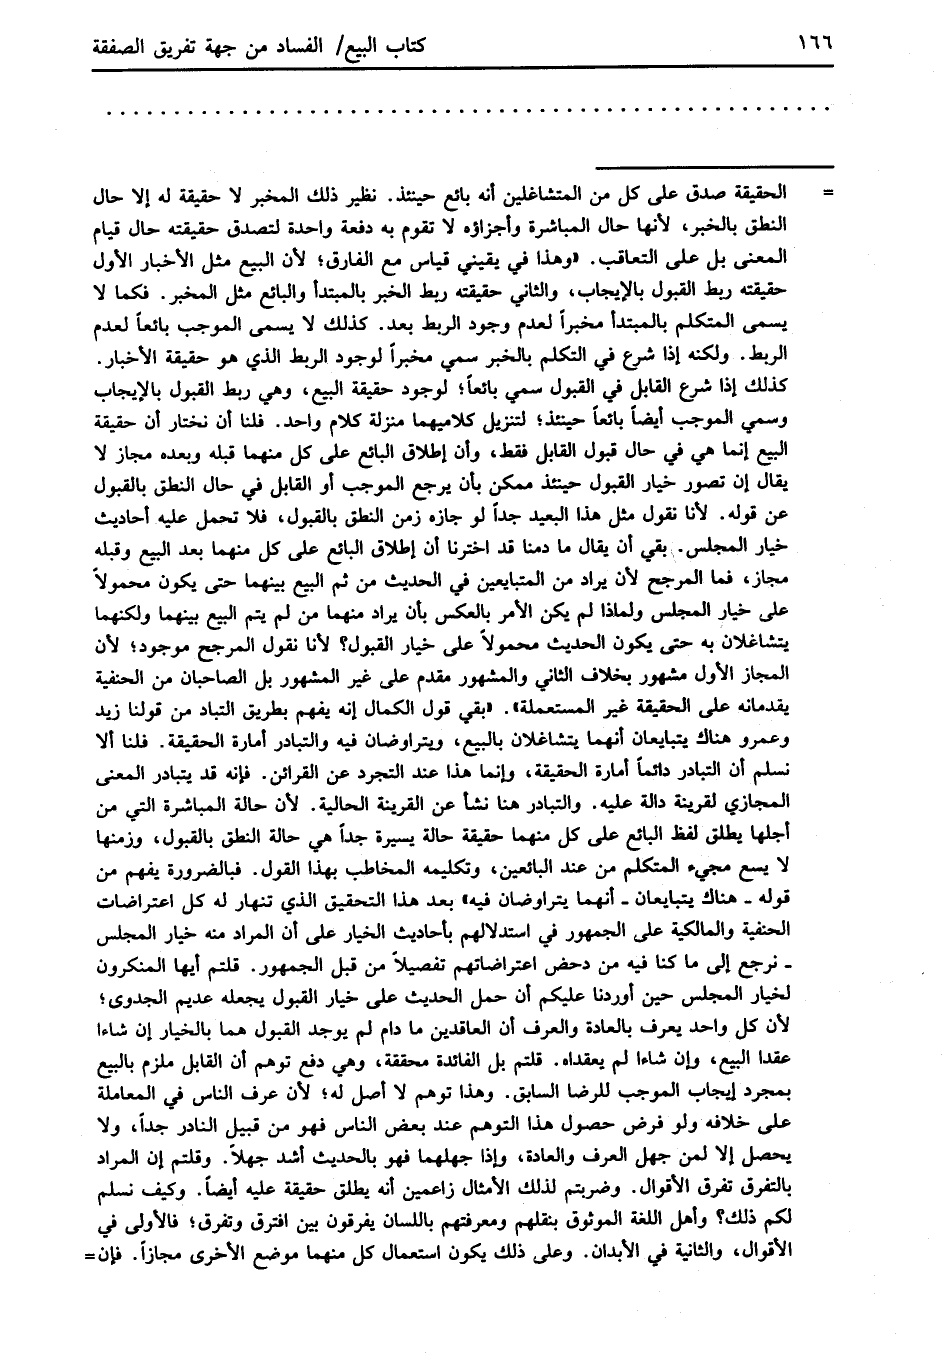 ١٦٦
كتاب البيع/ الفساد من جهة تفريق الصفقة
= الحقيقة صدق على كل من المتشاغلين أنه بائع حينئذ. نظير ذلك المخبر لا حقيقة له إلا حال
النطق بالخبر، لأنها حال المباشرة وأجزاؤه لا تقوم به دفعة واحدة لتصدق حقيقته حال قيام
المعنى بل على التعاقب. «وهذا في يقيني قياس مع الفارق؛ لأن البيع مثل الأخبار الأول
حقيقته ربط القبول بالإيجاب، والثاني حقيقته ربط الخبر بالمبتدأ والبائع مثل المخبر. فكما لا
يسمى المتكلم بالمبتدأ مخبراً لعدم وجود الربط بعد. كذلك لا يسمى الموجب بائعاً لعدم
الربط. ولكنه إذا شرع في التكلم بالخبر سمي مخبراً لوجود الربط الذي هو حقيقة الأخبار.
كذلك إذا شرع القابل في القبول سمي بائعاً؛ لوجود حقيقة البيع، وهي ربط القبول بالإيجاب
وسمي الموجب أيضاً بائعاً حينئذ؛ لتنزيل كلاميهما منزلة كلام واحد. فلنا أن نختار أن حقيقة
البيع إنما هي في حال قبول القابل فقط، وأن إطلاق البائع على كل منهما قبله وبعده مجاز لا
يقال إن تصور خيار القبول حينئذ ممكن بأن يرجع الموجب أو القابل في حال النطق بالقبول
عن قوله. لأنا نقول مثل هذا البعيد جداً لو جازه زمن النطق بالقبول، فلا تحمل عليه أحاديث
خيار المجلس. بقي أن يقال ما دمنا قد اخترنا أن إطلاق البائع على كل منهما بعد البيع وقبله
مجاز، فما المرجح لأن يراد من المتبايعين في الحديث من ثم البيع بينهما حتى يكون محمولاً
على خيار المجلس ولماذا لم يكن الأمر بالعكس بأن يراد منهما من لم يتم البيع بينهما ولكنهما
يتشاغلان به حتى يكون الحديث محمولاً على خيار القبول؟ لأنا نقول المرجح موجود؛ لأن
المجاز الأول مشهور بخلاف الثاني والمشهور مقدم على غير المشهور بل الصاحبان من الحنفية
يقدمانه على الحقيقة غير المستعملة». «بقي قول الكمال إنه يفهم بطريق التباد من قولنا زيد
وعمرو هناك يتبايعان أنهما يتشاغلان بالبيع، ويتراوضان فيه والتبادر أمارة الحقيقة. فلنا ألا
نسلم أن التبادر دائماً أمارة الحقيقة، وإنما هذا عند التجرد عن القرائن. فإنه قد يتبادر المعنى
المجازي لقرينة دالة عليه. والتبادر هنا نشأ عن القرينة الحالية. لأن حالة المباشرة التي من
أجلها يطلق لفظ البائع على كل منهما حقيقة حالة يسيرة جداً هي حالة النطق بالقبول، وزمنها
لا يسع مجيء المتكلم من عند البائعين، وتكليمه المخاطب بهذا القول. فبالضرورة يفهم من
قوله ـ هناك يتبايعان ـ أنهما يتراوضان فيه» بعد هذا التحقيق الذي تنهار له كل اعتراضات
الحنفية والمالكية على الجمهور في استدلالهم بأحاديث الخيار على أن المراد منه خيار المجلس
ـ نرجع إلى ما كنا فيه من دحض اعتراضاتهم تفصيلاً من قبل الجمهور. قلتم أيها المنكرون
لخيار المجلس حين أوردنا عليكم أن حمل الحديث على خيار القبول يجعله عديم الجدوى؛
لأن كل واحد يعرف بالعادة والعرف أن العاقدين ما دام لم يوجد القبول هما بالخيار إن شاءا
عقدا البيع، وإن شاءا لم يعقداه. قلتم بل الفائدة محققة، وهي دفع توهم أن القابل ملزم بالبيع
بمجرد إيجاب الموجب للرضا السابق. وهذا توهم لا أصل له؛ لأن عرف الناس في المعاملة
على خلافه ولو فرض حصول هذا التوهم عند بعض الناس فهو من قبيل النادر جداً، ولا
يحصل إلا لمن جهل العرف والعادة، وإذا جهلهما فهو بالحديث أشد جهلاً. وقلتم إن المراد
بالتفرق تفرق الأقوال. وضربتم لذلك الأمثال زاعمين أنه يطلق حقيقة عليه أيضاً. وكيف نسلم
لكم ذلك؟ وأهل اللغة الموثوق بنقلهم ومعرفتهم باللسان يفرقون بين افترق وتفرق؛ فالأولى في
الأقوال، والثانية في الأبدان. وعلى ذلك يكون استعمال كل منهما موضع الأخرى مجازاً. فإن =